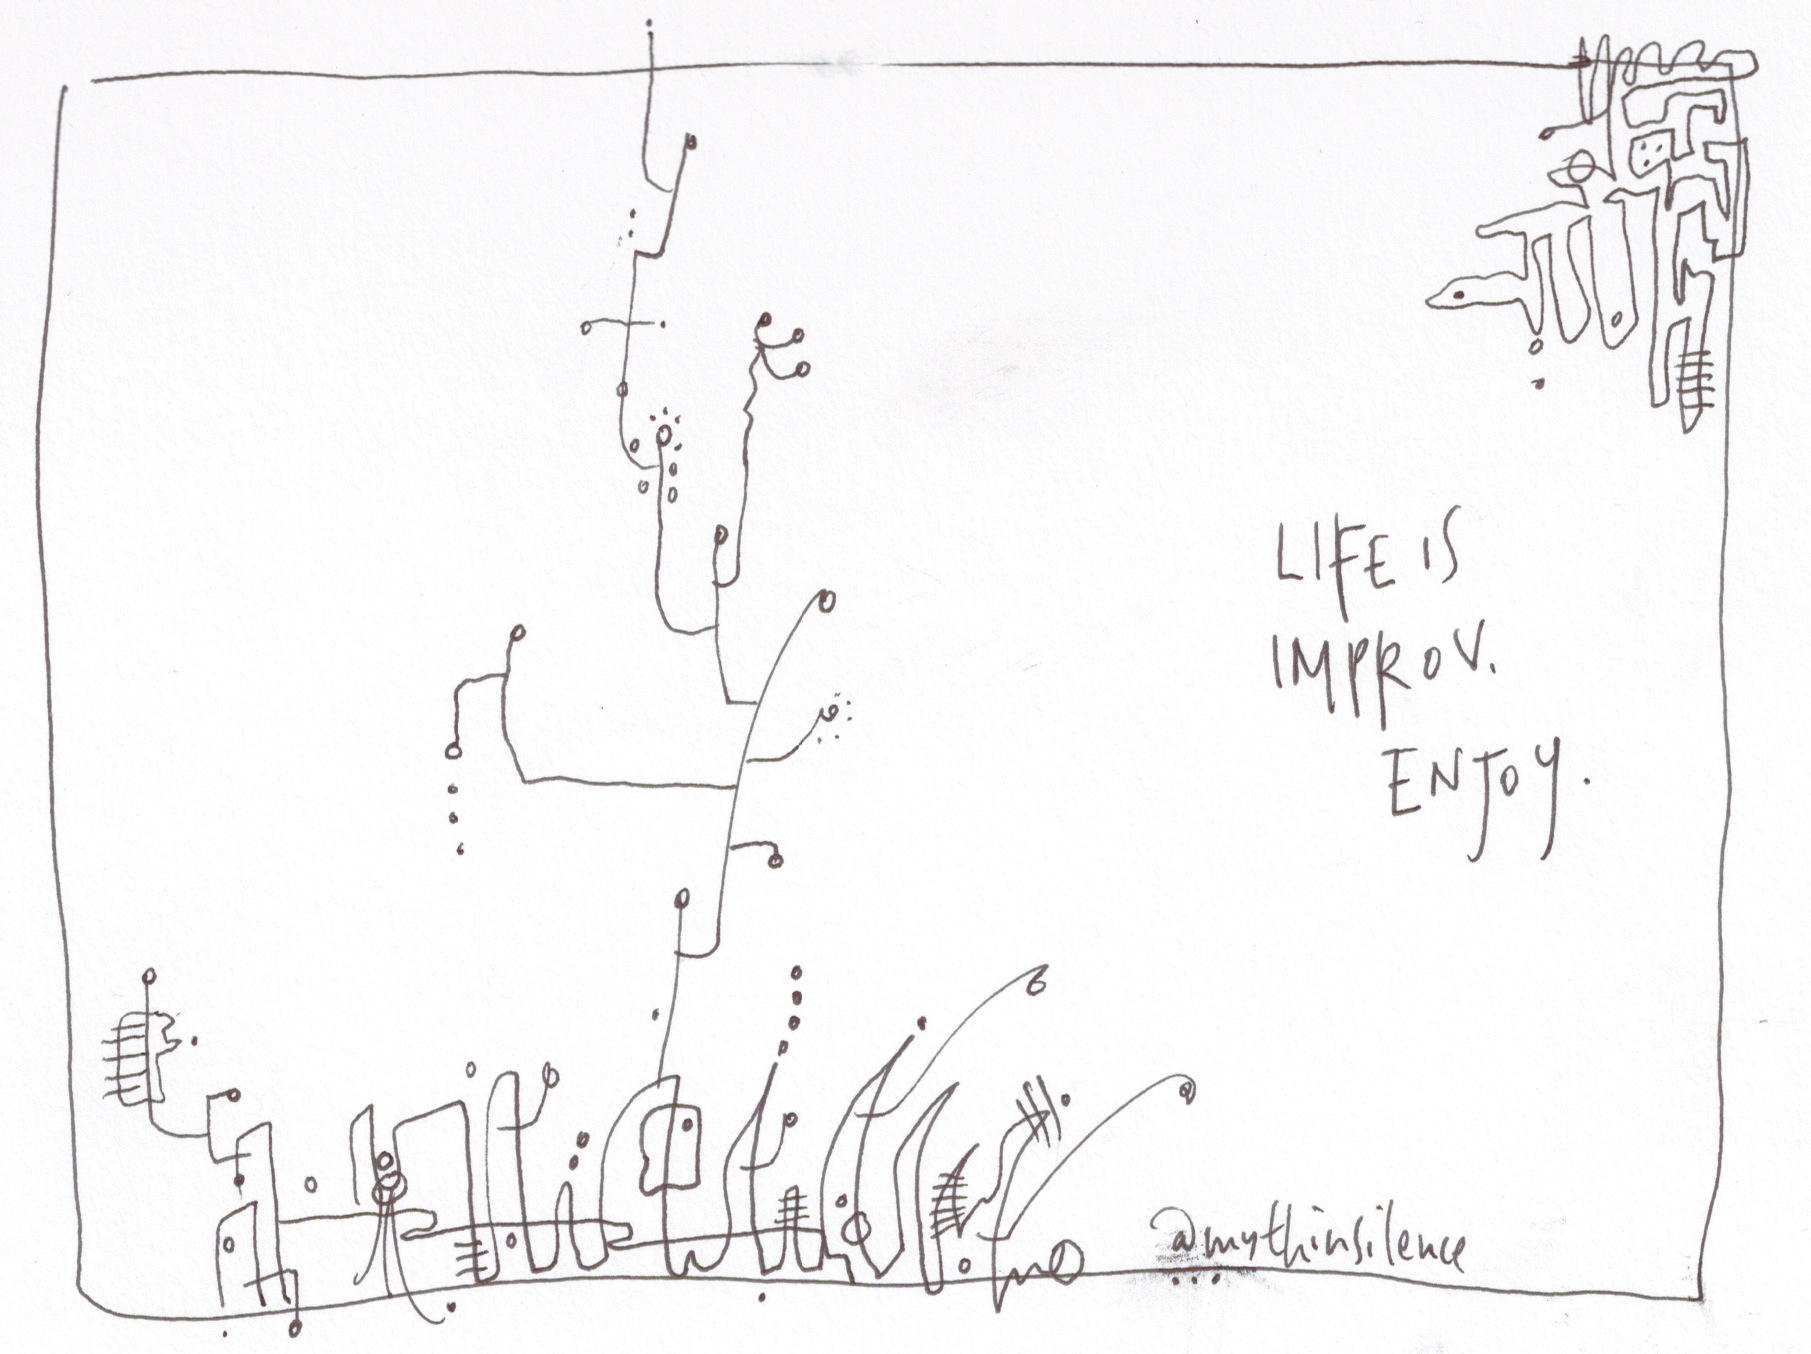 LIFE IS
IMPROV.
ENJOY.
@mythinsilence